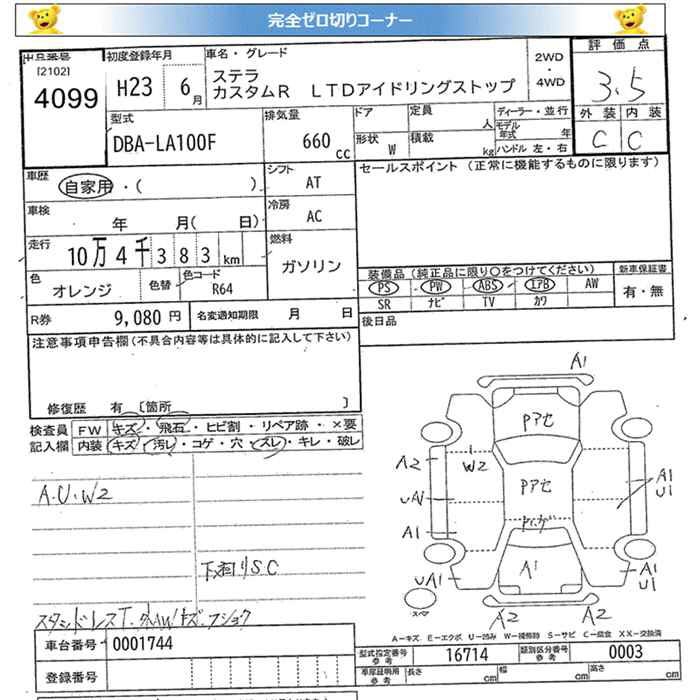 完全ゼロ切りコーナー
出品番号
[2102]
4099
初度登録年月
H23 6月
車名・グレード
ステラ
カスタムR LTDアイドリングストップ
2WD
・
4WD
評価点
3.5
型式
DBA-LA100F
排気量
660 cc
ドア
定員
人
形状
W
積載
kg
ディーラー・並行
モデル年式 年
ハンドル 左・右
外装 内装
C C
車歴
自家用・( )
シフト
AT
セールスポイント (正常に機能するものに限ります)
車検
年 月( 日)
冷房
AC
走行
10万4千383km
燃料
ガソリン
色
オレンジ
色替
色コード
R64
装備品(純正品に限り○をつけてください)
PS PW ABS エアB AW
SR ナビ TV カワ
新車保証書
有・無
R券 9,080 円
名変通知期限 月 日
後日品
注意事項申告欄(不具合内容等は具体的に記入して下さい)
修復歴 有 〔箇所 〕
検査員記入欄
FW キズ・飛石・ヒビ割・リペア跡・×要
内装 キズ・汚レ・コゲ・穴・スレ・キレ・破レ
A.U.W2
下廻りSC
スタッドレスT.外AWキズ.フショク
車台番号 0001744
登録番号
A1
Pアセ
A2
W2
Pアセ
A1
U1
UA1
A1
A1
UA1
A1
U1
スペ
A2
A2
A-キズ E-エクボ U-凹み W-補修跡 S-サビ C-腐食 XX-交換済
型式指定番号 参考 16714
類別区分番号 参考 0003
車庫証明用 参考 長さ cm 幅 cm 高さ cm